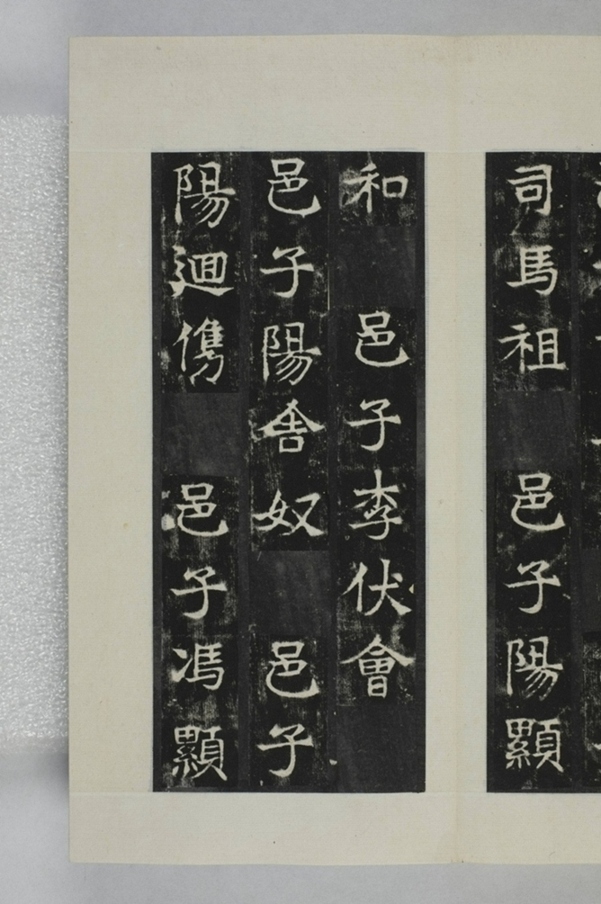 司馬祖 邑子陽顯
和 邑子李伏會
邑子陽舍奴 邑子
陽迴儁 邑子馮顯